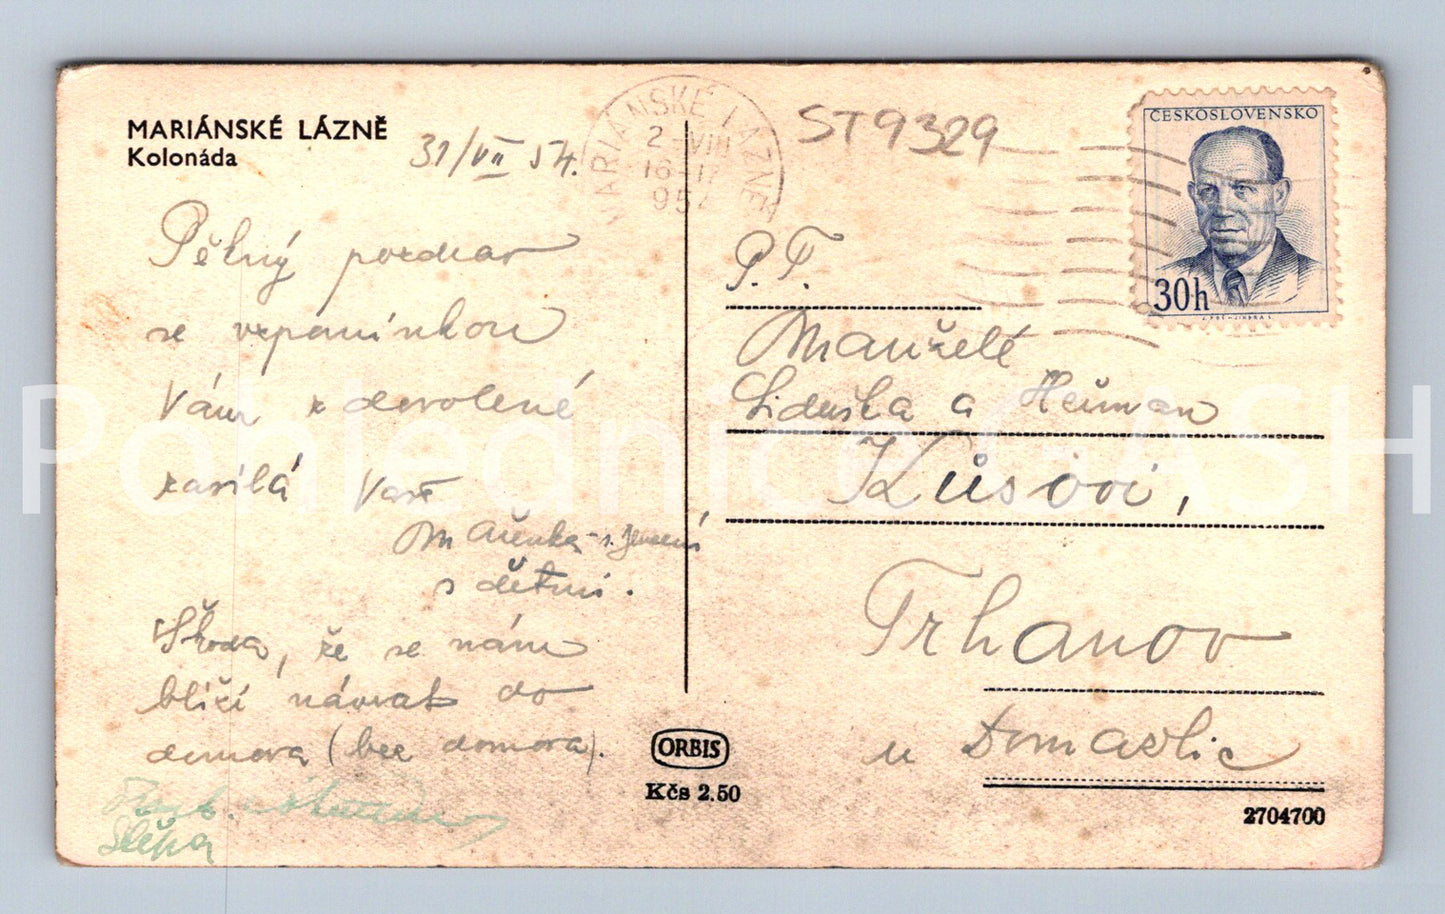 MARIÁNSKÉ LÁZNĚ
Kolonáda
31/VII 54.
MARIÁNSKÉ LÁZNĚ
2 VIII
16-17
954
ST9329
ČESKOSLOVENSKO
30h
Pěkný pozdrav
se vzpomínkou
Vám z dovolené
zasílá Vaše
Mařenka
s dětmi.
Škoda, že se nám
blíží návrat do
domova (bez domova).
Slávka
P.T.
Manželé
Liduška a Heřman
Kůsovi,
Trhanov
u Domažlic
ORBIS
Kčs 2.50
2704700
Pohlednice GASH